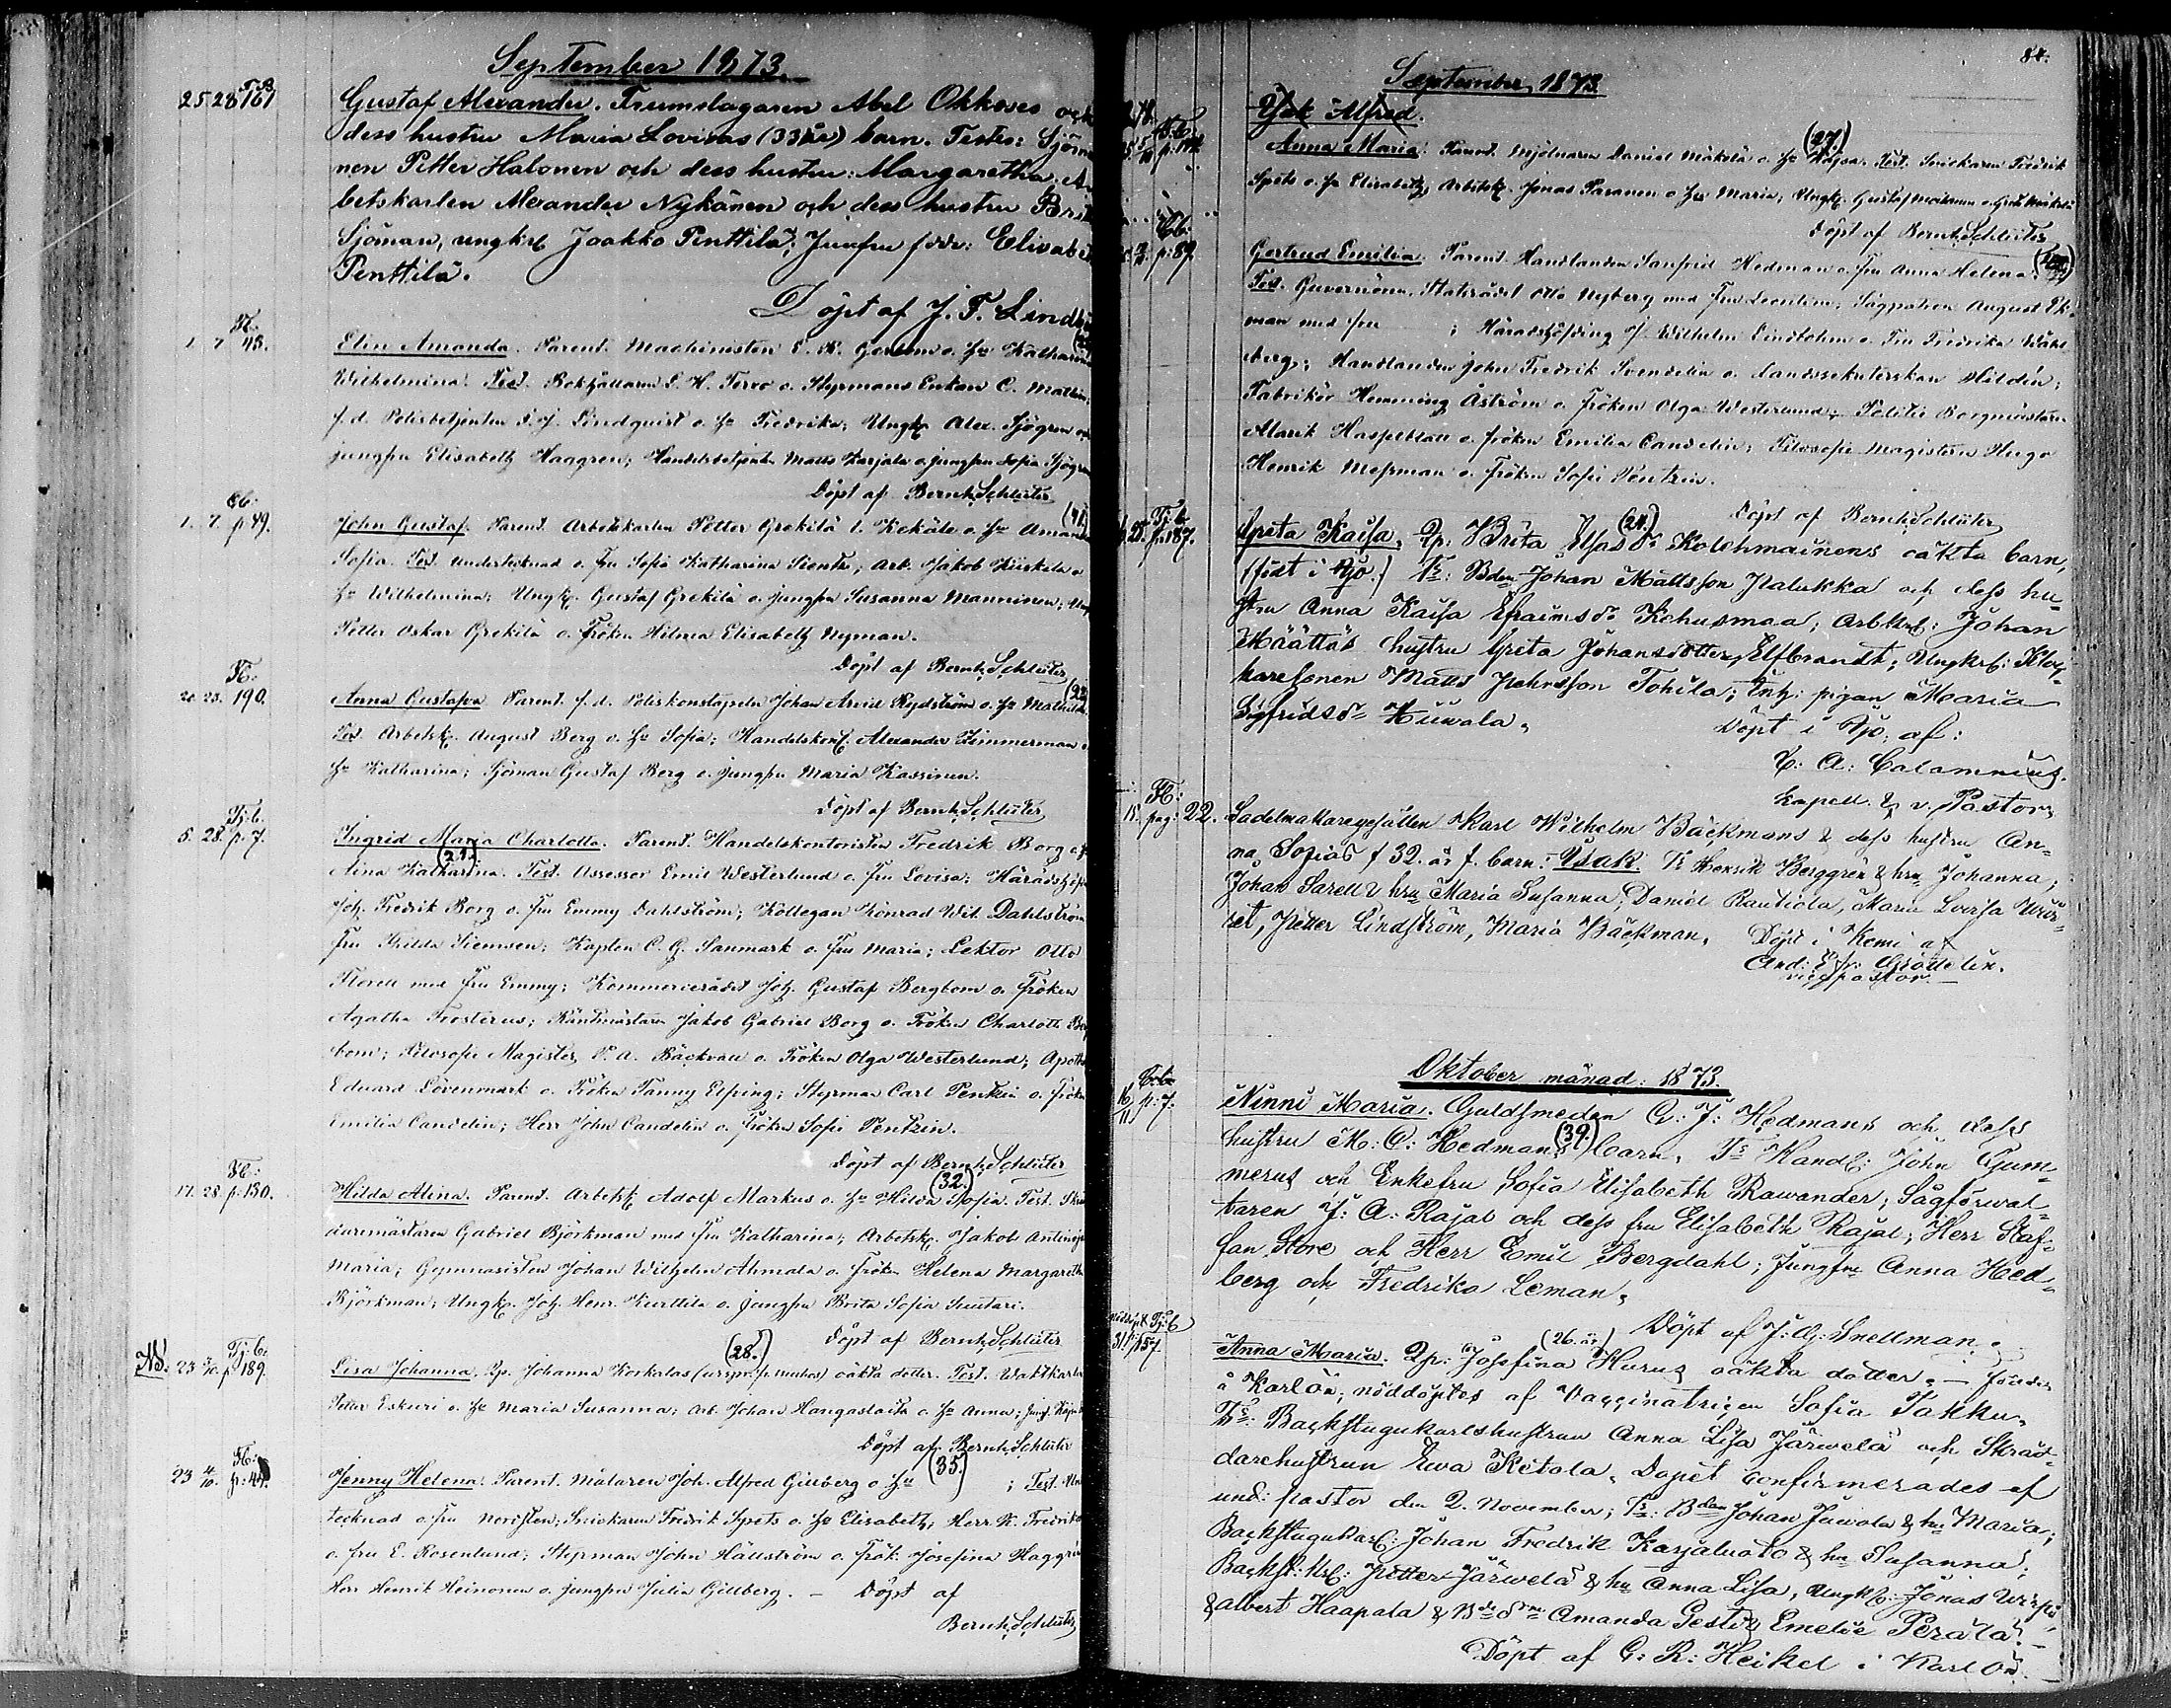 September 1873.
25 28 T.B. 161 Gustaf Alexander. Trumslagaren Abel Okkoses och
dess hustru Maria Lovisas (33 år) barn. Testes: Sjöman-
nen Petter Halonen och dess hustru: Margaretha; Ar-
betskarlen Alexander Nykänen och dess hustru Brita
Sjöman, ungkrl Jaakko Penttilä; Jumfru Elisabet
Penttilä.
Döpt af J. F. Lind
1. 7. 43. Elin Amanda. Parent. Machinisten o. Hu Katharina
Wilhelmina. Test. Bokhållaren E. H. Tervo o. Styrmans Enkan C. Mathin;
f.d. Polisbetjenten Lindquist o. Hu Fredrika; Ungk. Alex. Sjögren o.
jungfru Elisabeth Haggren; Handelsbetjenten Matts Karjala o. jungfru Sofia Sjögren
Döpt af Bernh. Schlüter
1. 7. p. 49. John Gustaf. Parent. Arbetskarlen Petter Grekilä l. Kekäle o. Hu Amanda (41.)
Sofia. Test. Undertecknad o. fru Sofia Katharina; Arb. Jakob Kiiskila o.
Hu Wilhelmina; Ungk. Gustaf Grekilä o. jungfru Susanna Manninen; Ungk
Petter Oskar Grekilä o. Fröken Hilma Elisabeth Nyman.
Döpt af Bernh. Schlüter
20 23. 190. Anna Gustafva Parent. f.d. Poliskonstapeln Johan Arvid Rydström o. Hu Mathilda (22)
Test. Arbetsk. August Berg o. Hu Sofia; Handelskarl. Alexander Zimmerman o.
Hu Katharina; Sjöman Gustaf Berg o. jungfru Maria Kassinen.
Döpt af Bernh. Schlüter
5. 28. Tj.b. p. 7. Ingrid Maria Charlotta. Parent. Handelskontoristen Fredrik Borg o. fr
Aina Katharina. (21.) Test. Assessor Emil Westerlund o. Fru Lovisa; Häradshöfd
Joh. Fredrik Borg o. Fru Emmy Dahlström; Kollegan Konrad Wil. Dahlström
Fru Hilda Siemsen; Kapten C. G. Sanmark o. Fru Maria; Lektor Otto
Florell med Fru Emmy; Kommerserådet Joh. Gustaf Bergbom o. Fröken
Agatha Frosterus; Räntmästaren Jakob Gabriel Borg o. Fröken Charlott Berg
bom; Filosofie Magister P. A. Bäckvall o. Fröken Olga Westerlund; Apothe
Eduard Lövenmark o. Fröken Fanny Elfving; Styrman Carl Pentzin o. Fröken
Emilia Candelin; Herr John Candelin o. Fröken Sofi Pentzin.
Döpt af Bernh. Schlüter
17. 28. p. 130. Hilda Alina. Parent. Arbetsk. Adolf Markus o. Hu Hilda Sofia. (32.) Test. Skräd
daremästaren Gabriel Björkman med Fru Katharina; Arbetsk. Jakob
Maria; Gymnasisten Johan Wilhelm Ahmala o. Fröken Helena Margaretha
Björkman; Ungk. Joh. Henr. Kurttila o. jungfru Brita Sofia Suutari.
Döpt af Bernh. Schlüter
NB. 23 5/10. Tj.b. p. 189. Lisa Johanna. Qp. Johanna Korkalas oäkta dotter. (28.) Test. Waktkarlen
Petter Eskuri o. Hu Maria Susanna; Arb. Johan Hangaslaita o. Hu Anna;
Döpt af Bernh. Schlüter
23 4/10. p. 44. Jenny Helena. Parent. Målaren Joh. Alfred Gillberg o. Hu (35.) ; Test. Un
tecknad o. fru; Snickaren Fredrik Spets o. Hu Elisabeth; Herr K. Fredrik
o. fru E. Rosenlund; Styrman John Hällström o. Frök. Josefina Haggrén
Herr Henrik Heinonen o. jungfru Julia Gillberg. – Döpt af
Bernh. Schlüter
84.
September 1873.
Isak Alfred.
Anna Maria. Parent. Mjölnaren Daniel Mäkelä o. Hu Kajsa. (27.) Test. Snickaren Fredrik
Spets o. Hu Elisabeth; Arbetsk. Jonas Paranen o. Hu Maria; Ungk. Gustaf
Döpt af Bernh. Schlüter
p. 89. Gertrud Emilia. Parent. Handlanden Sanfrid Hedman o. Fru Anna Helena.
Test. Guvernören, Statsrådet Otto Nyberg med Fru Leontine; Sågpatron August Ek-
man med fru ; Häradshöfding J. Wilhelm Lindholm o. Fru Fredrika Wahl
berg; Handlanden John Fredrik Svendelin o. Landssekreterskan Hildén;
Fabrikör Hemming Åström o. Fröken Olga Westerlund; Politie Borgmästaren
Alarik Haselblatt o. Fröken Emilia Candelin; Filosofie Magistern Hugo
Henrik Messman o. Fröken Sofi Pentzin.
Döpt af Bernh. Schlüter
28. Tj.b. p. 187. Greta Kaisa. Qp. Brita Elsas dr Kolehmainens oäkta barn, (24.)
(född i Ijo.) Ts: Bden Johan Mattsson Palukka och dess hu-
stru Anna Kaisa Efraimsdr Kehusmaa; Arbkrl: Johan
Määttäs hustru Greta Johansdotter Elfbrandt; Ungkrl: Kloc-
karesonen Matts Pehrsson Tohila; Inh: pigan Maria
Sigfridsdr Kuiwala.
Döpt i Ijo, af:
C: A: Calamnius.
kapell. & v. Pastor.
15. Hb: pag: 22. Sadelmakaregesällen Karl Wilhelm Bäckmans & dess hustru An-
na Sofias f 32. år f. barn: Isak. Ts Henrik Berggrén & hru Johanna;
Johan Sarell & hru Maria Susanna; Daniel Rautiola, Maria Lovisa
Petter Lindström, Maria Bäckman.
Döpt i Kemi af
And: Ef: Grottelin.
vicepastor.
Oktober månad: 1873.
16/11 p. 7. Ninni Maria. Guldsmeden C: J: Hedmans och dess
hustru M: C: Hedmans (39.) barn. Ts Handl: John Gum-
merus och Enkefru Sofia Elisabeth Rawander; Sågförwal-
taren J: A: Rajal och dess fru Elisabeth Rajal; Herr Staf-
fan Store och Herr Emil Bergdahl; Jungfru Anna Hed-
berg och Fredrika Leman.
Döpt af J: G: Snellman.
nöddöpt Tj:b 31. p. 57. Anna Maria. Qp. Josefina Hurus oäkta dotter. (26. år) – Föddes
å Karlön; nöddöptes af Vaccinatricen Sofia Takku.
Ts: Backstugukarlshustrun Anna Lisa Järwelä och Skräd-
darehustrun Ewa Ketola. Dopet confirmerades af
und: pastor den 2. November; Ts: Bden Johan Juwola & hu Maria;
Backstugukarl: Johan Fredrik Karjaluoto & hu Susanna;
Backst: krl: Petter Järwelä & hu Anna Lisa, Ungk: Jonas
& Albert Haapala & Bdedr Amanda Pesti & Emelie Perälä. –
Döpt af G: R: Heikel i Karlön.